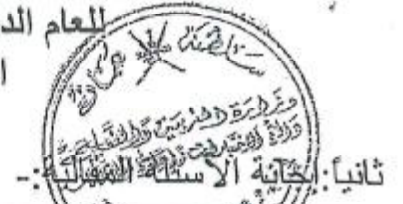 للعام الد
ا
سلطنة عمان
وزارة التربية والتعليم
ثانياً: إجابة الأسئلة المقالية:-